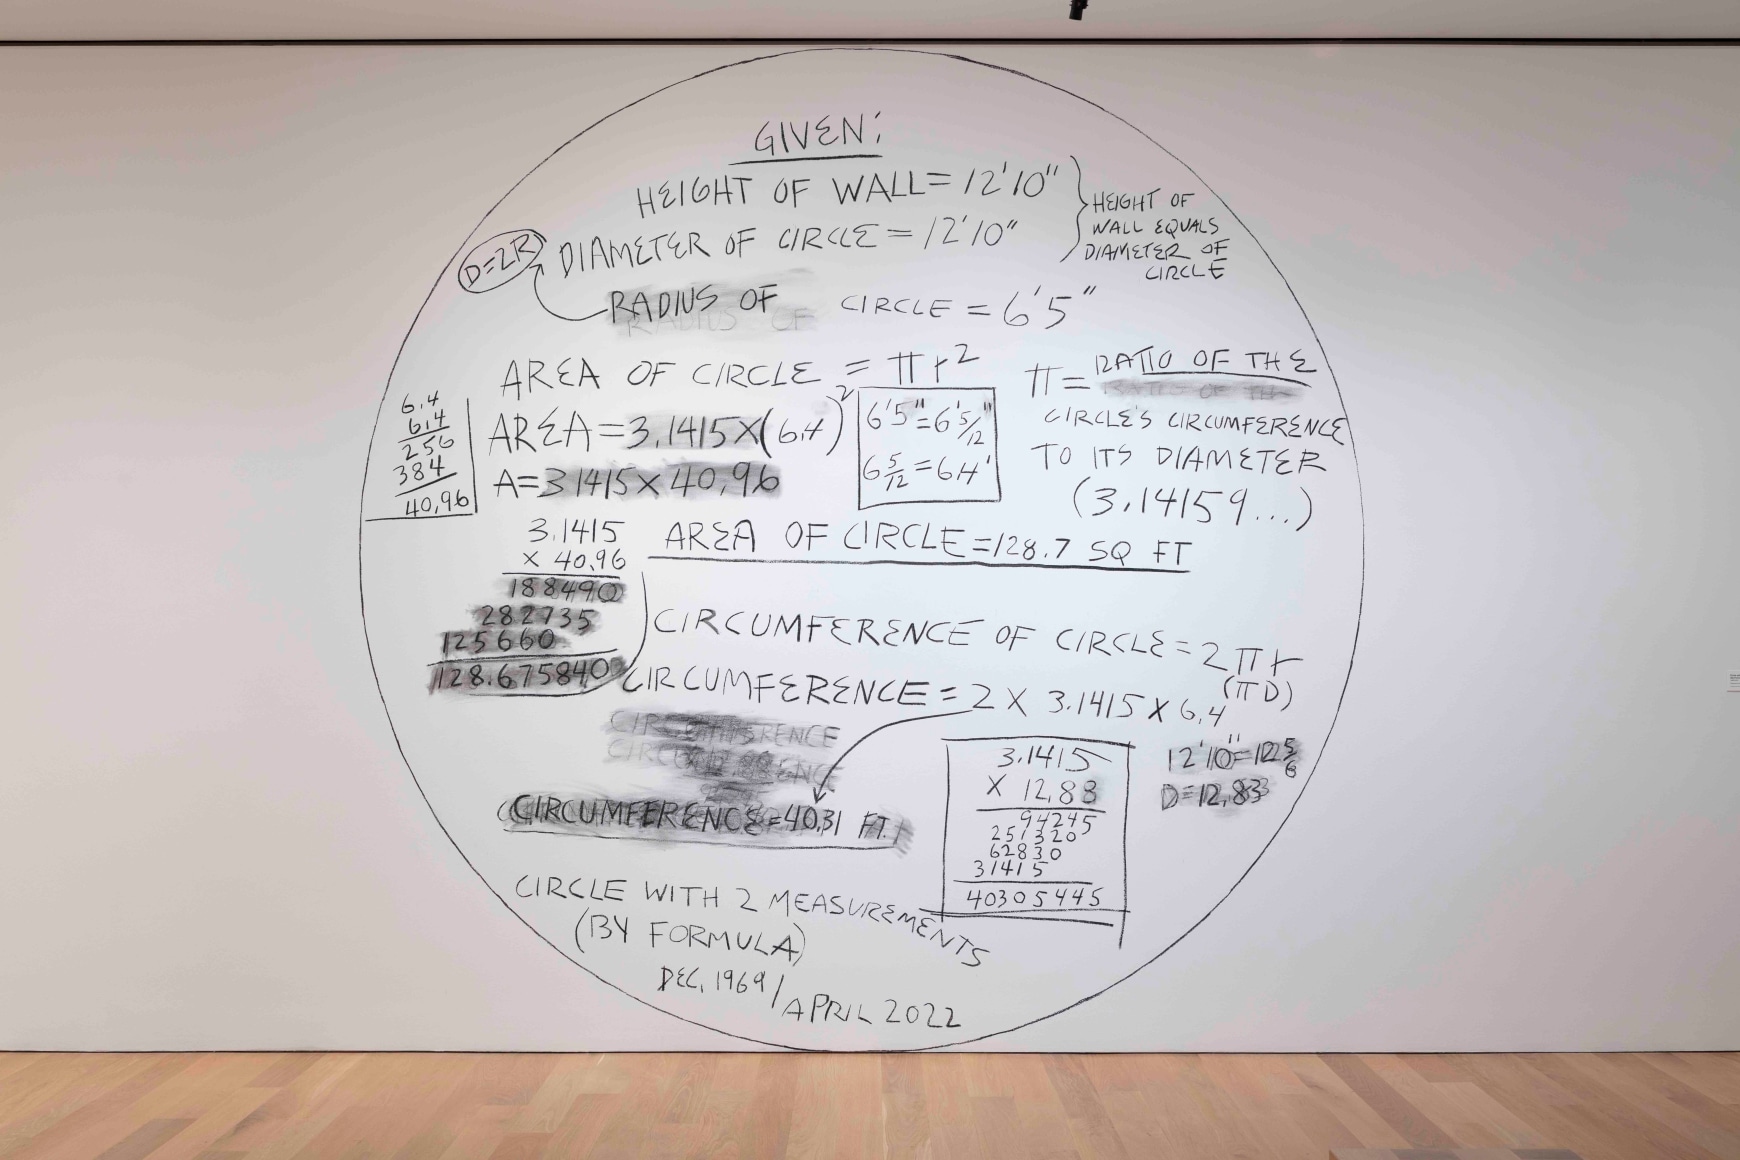 GIVEN:
HEIGHT OF WALL = 12'10"
DIAMETER OF CIRCLE = 12'10"
HEIGHT OF
WALL EQUALS
DIAMETER OF
CIRCLE
D=2R
RADIUS OF CIRCLE = 6'5"
RADIUS OF
AREA OF CIRCLE = πr²
π = RATIO OF THE
RATIO OF TH
CIRCLE'S CIRCUMFERENCE
TO ITS DIAMETER
(3.14159...)
6.4
6.4
256
384
40.96
AREA = 3.1415 X (6.4)²
A = 3.1415 X 40.96
6'5" = 6'5/12"
6 5/12 = 6.4'
3.1415
X 40.96
188490
282735
125660
128.675840
AREA OF CIRCLE = 128.7 SQ FT
CIRCUMFERENCE OF CIRCLE = 2πr
(πD)
CIRCUMFERENCE = 2 X 3.1415 X 6.4
CIRCUMFERENCE
CIRCUMFERENCE
CIRCUMFERENCE = 40.31 FT.
3.1415
X 12.83
94245
251320
62830
31415
40305445
12'10" = 12 5/6
D = 12.83
CIRCLE WITH 2 MEASUREMENTS
(BY FORMULA)
DEC. 1969 / APRIL 2022